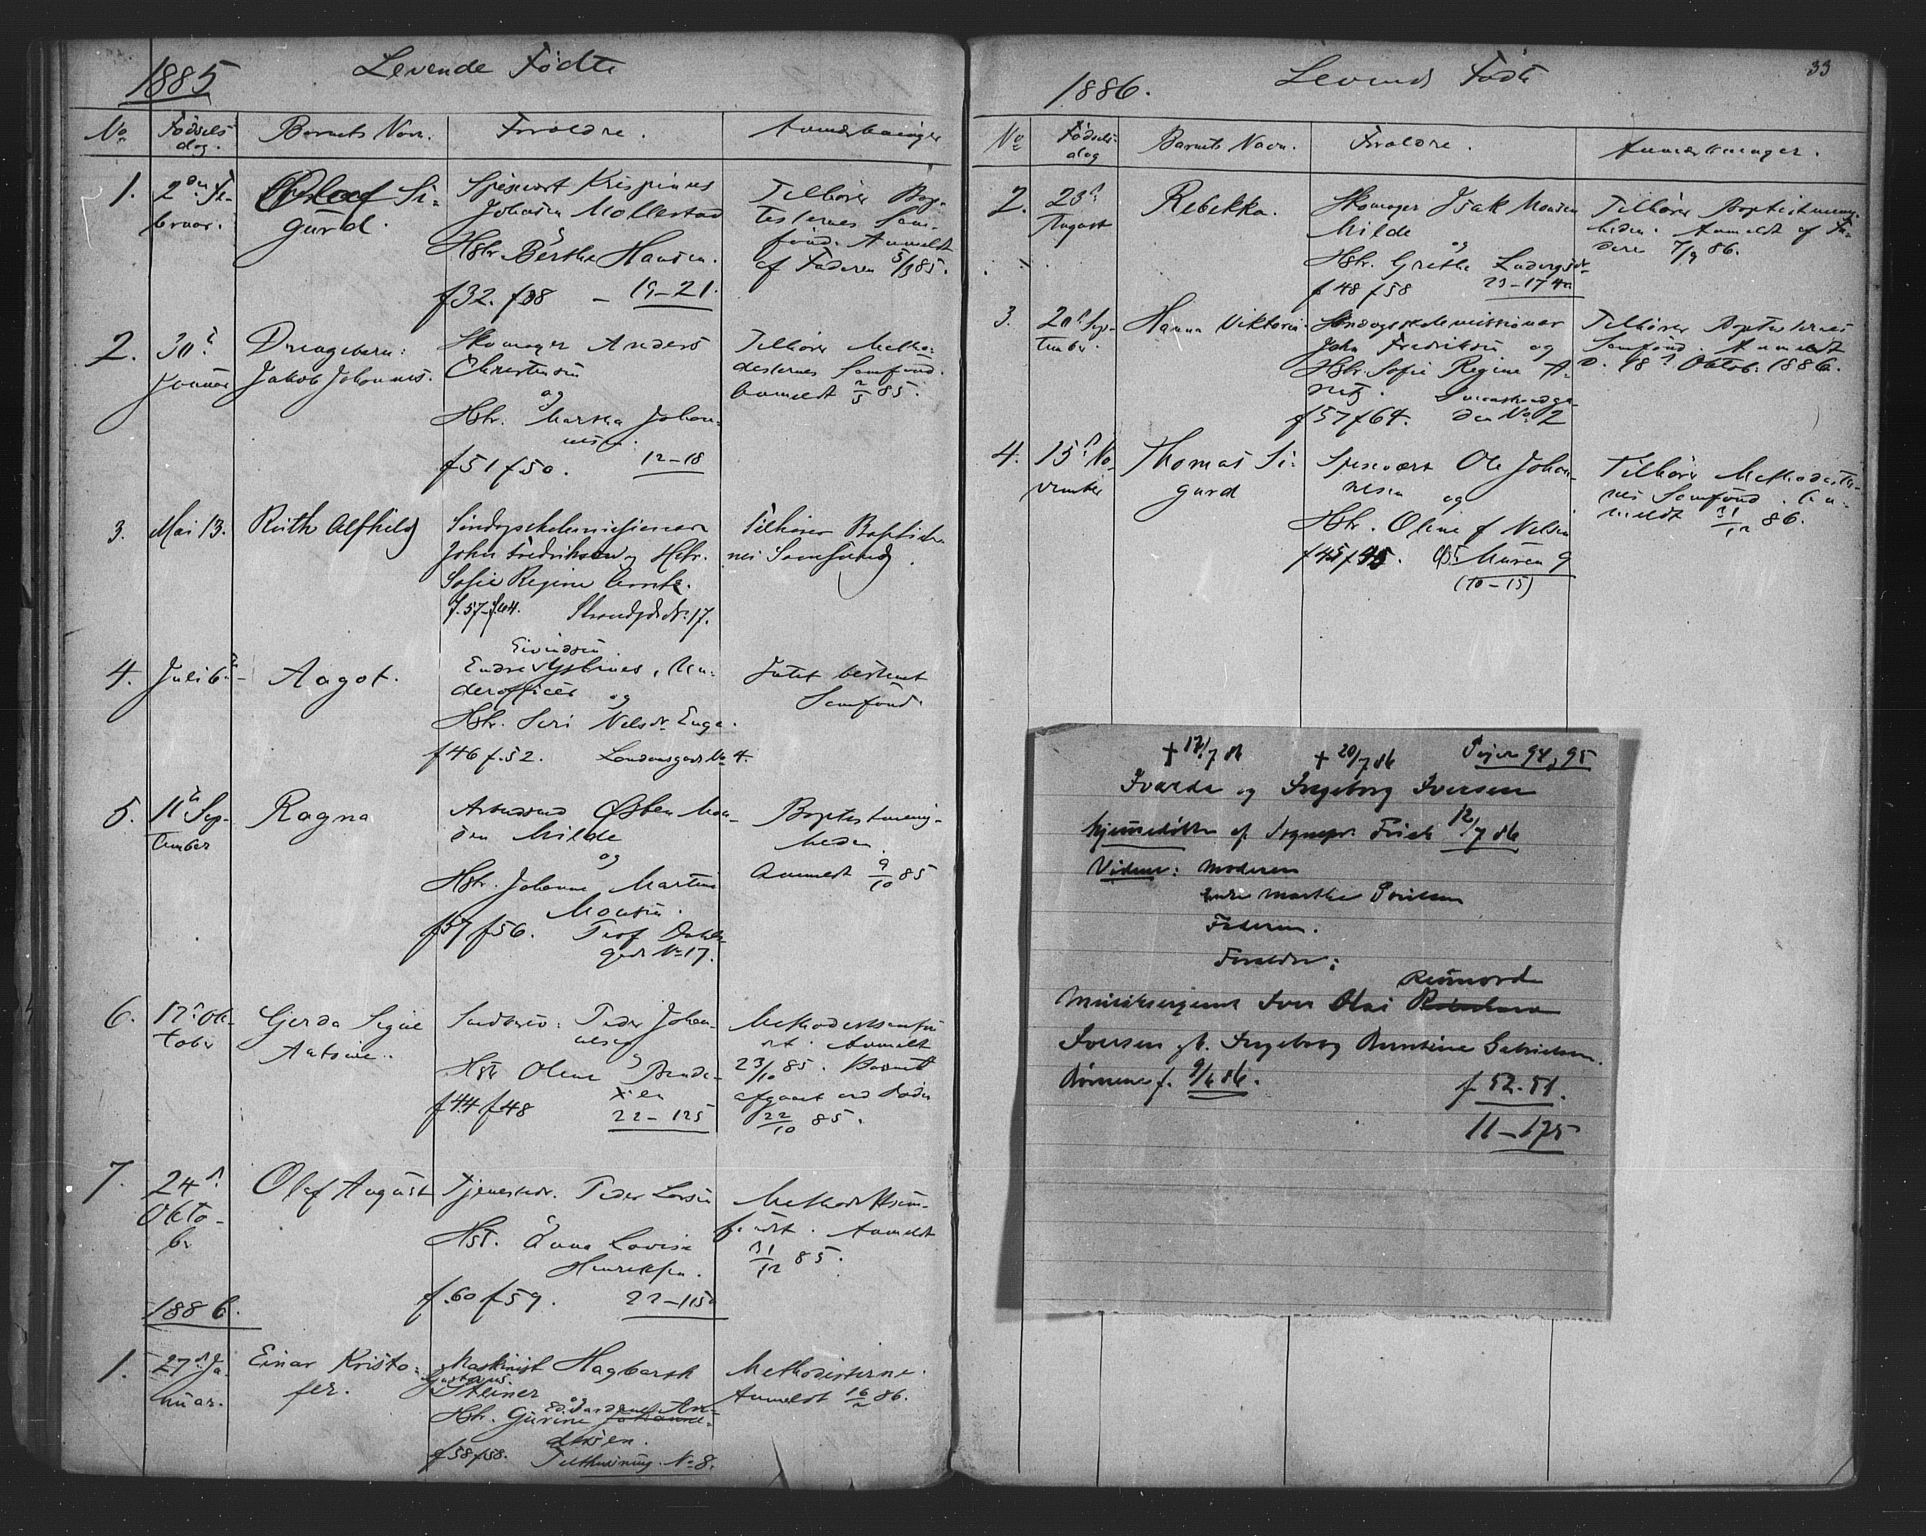 1885
Levende Fødte
No
Fødsels
dag.
Barnets Navn.
Forældre.
Anmærkninger
1.
2den Fe-
bruar.
Oluf Si-
gurd.
Spisevært Krispinus
Johnsen Mollestad
og
Hstr. Berthe Hansen.
f 32. f 38 – 19–21.
Tilhører Bap-
tisternes Sam-
fund. Anmeldt
af Faderen 5/3 85.
2.
30te
Januar
Drengebarn:
Jakob Johannes.
Skomager Anders
Christensen
og
Hstr. Martha Johan-
nesen.
f 51 f 50. 12–18
Tilhører Metho-
disternes Samfund.
Anmeldt 2/3 85.
3.
Mai 13.
Ruth Alfhild
Søndagsskolemissionær
John Fredriksen og Hstr.
Sofie Regine Arntz.
f. 57–f. 64. Strandgdr. 17.
Tilhører Baptister-
nes Samfund.
4.
Juli 6te
Aagot.
Eivindsen
Endre Gjelsnes, Un-
derofficer
og
Hstr. Seri Nelsdr. Enge.
f 46 f. 52. Londonsgade No 4.
Intet bestemt
Samfund.
5.
11te Sep-
tember
Ragna
Arbeidsmd Østen Mon-
sen Milde
og
Hstr. Johanne Martine
Monsen.
f 57 f 56. Prof. Dahls
gade No 17.
Baptistmenig-
heden.
Anmeldt 9/10 85
6.
17de Ok-
tober
Gerda Signe
Antonie.
Peder Johan-
nesen
og
Hstr Oline
f 44 f 48 22–125
Methodistsamfun-
det. Anmeldt
23/10 85. Barnet
afgaaet ved Døden
22/10 85.
7.
24de
Okto-
ber
Olaf August
Tjenestedr. Peder Larsen
og
Hst. Anna Lovise
Henriksen.
f. 60 f 59. 22–115a
Methodistsam-
fundet. Anmeldt
31/12 85.
1886.
1.
27de Ja-
nuar.
Einar Kristo-
fer.
Maskinist Hagbarth
Gustavus.
Steiner
og
Hstr. Gurine
densen.
f 58 f 58. No 8.
Methodisterne.
Anmeldt 16/2 86.
33
1886.
Levende Fødte
No
Fødsels-
dag
Barnets Navn.
Forældre.
Anmærkninger.
2.
23de
August
Rebekka.
Skomager Isak Monsen
Milde
og
Hstr. Grethe Ludvigsdr.
f 48 f 58 23–174a
Tilhører Baptistmenig-
heden. Anmeldt af Fa-
deren 7/9 86.
3.
20de Sep-
tember.
Hanna Viktoria.
Søndagsskolemissionær
John Fredriksen og
Hstr. Sofie Regine A-
rntz.
f 57 f 64. den No 2
Tilhører Baptisternes
Samfund. Anmeldt
d. 18de Oktob. 1886.
4.
15de No-
vember
Thomas Si-
gurd
Spisevært Ole Johan-
nesen og
Hstr. Oline f. Nelsen
f 45 f 45. Ø. Muren 9
(10–15)
Tilhører Methodister-
nes Samfund. An-
meldt 31/12 86.
+ 17/7 86 + 20/7 86 Piger 94, 95
Ivarda og Ingeborg Iversen
hjemmedøbte af Sognepr. Frich 12/7 86
Vidner: Moderen
Enke Marthe Poulsen
Faderen.
Forældre:
Reimord
Musiksergeant Iver Olai
Iversen gb. Ingeborg Berntine Gabrielsen.
Børnene f. 9/6 86. f. 52. 51.
11–175